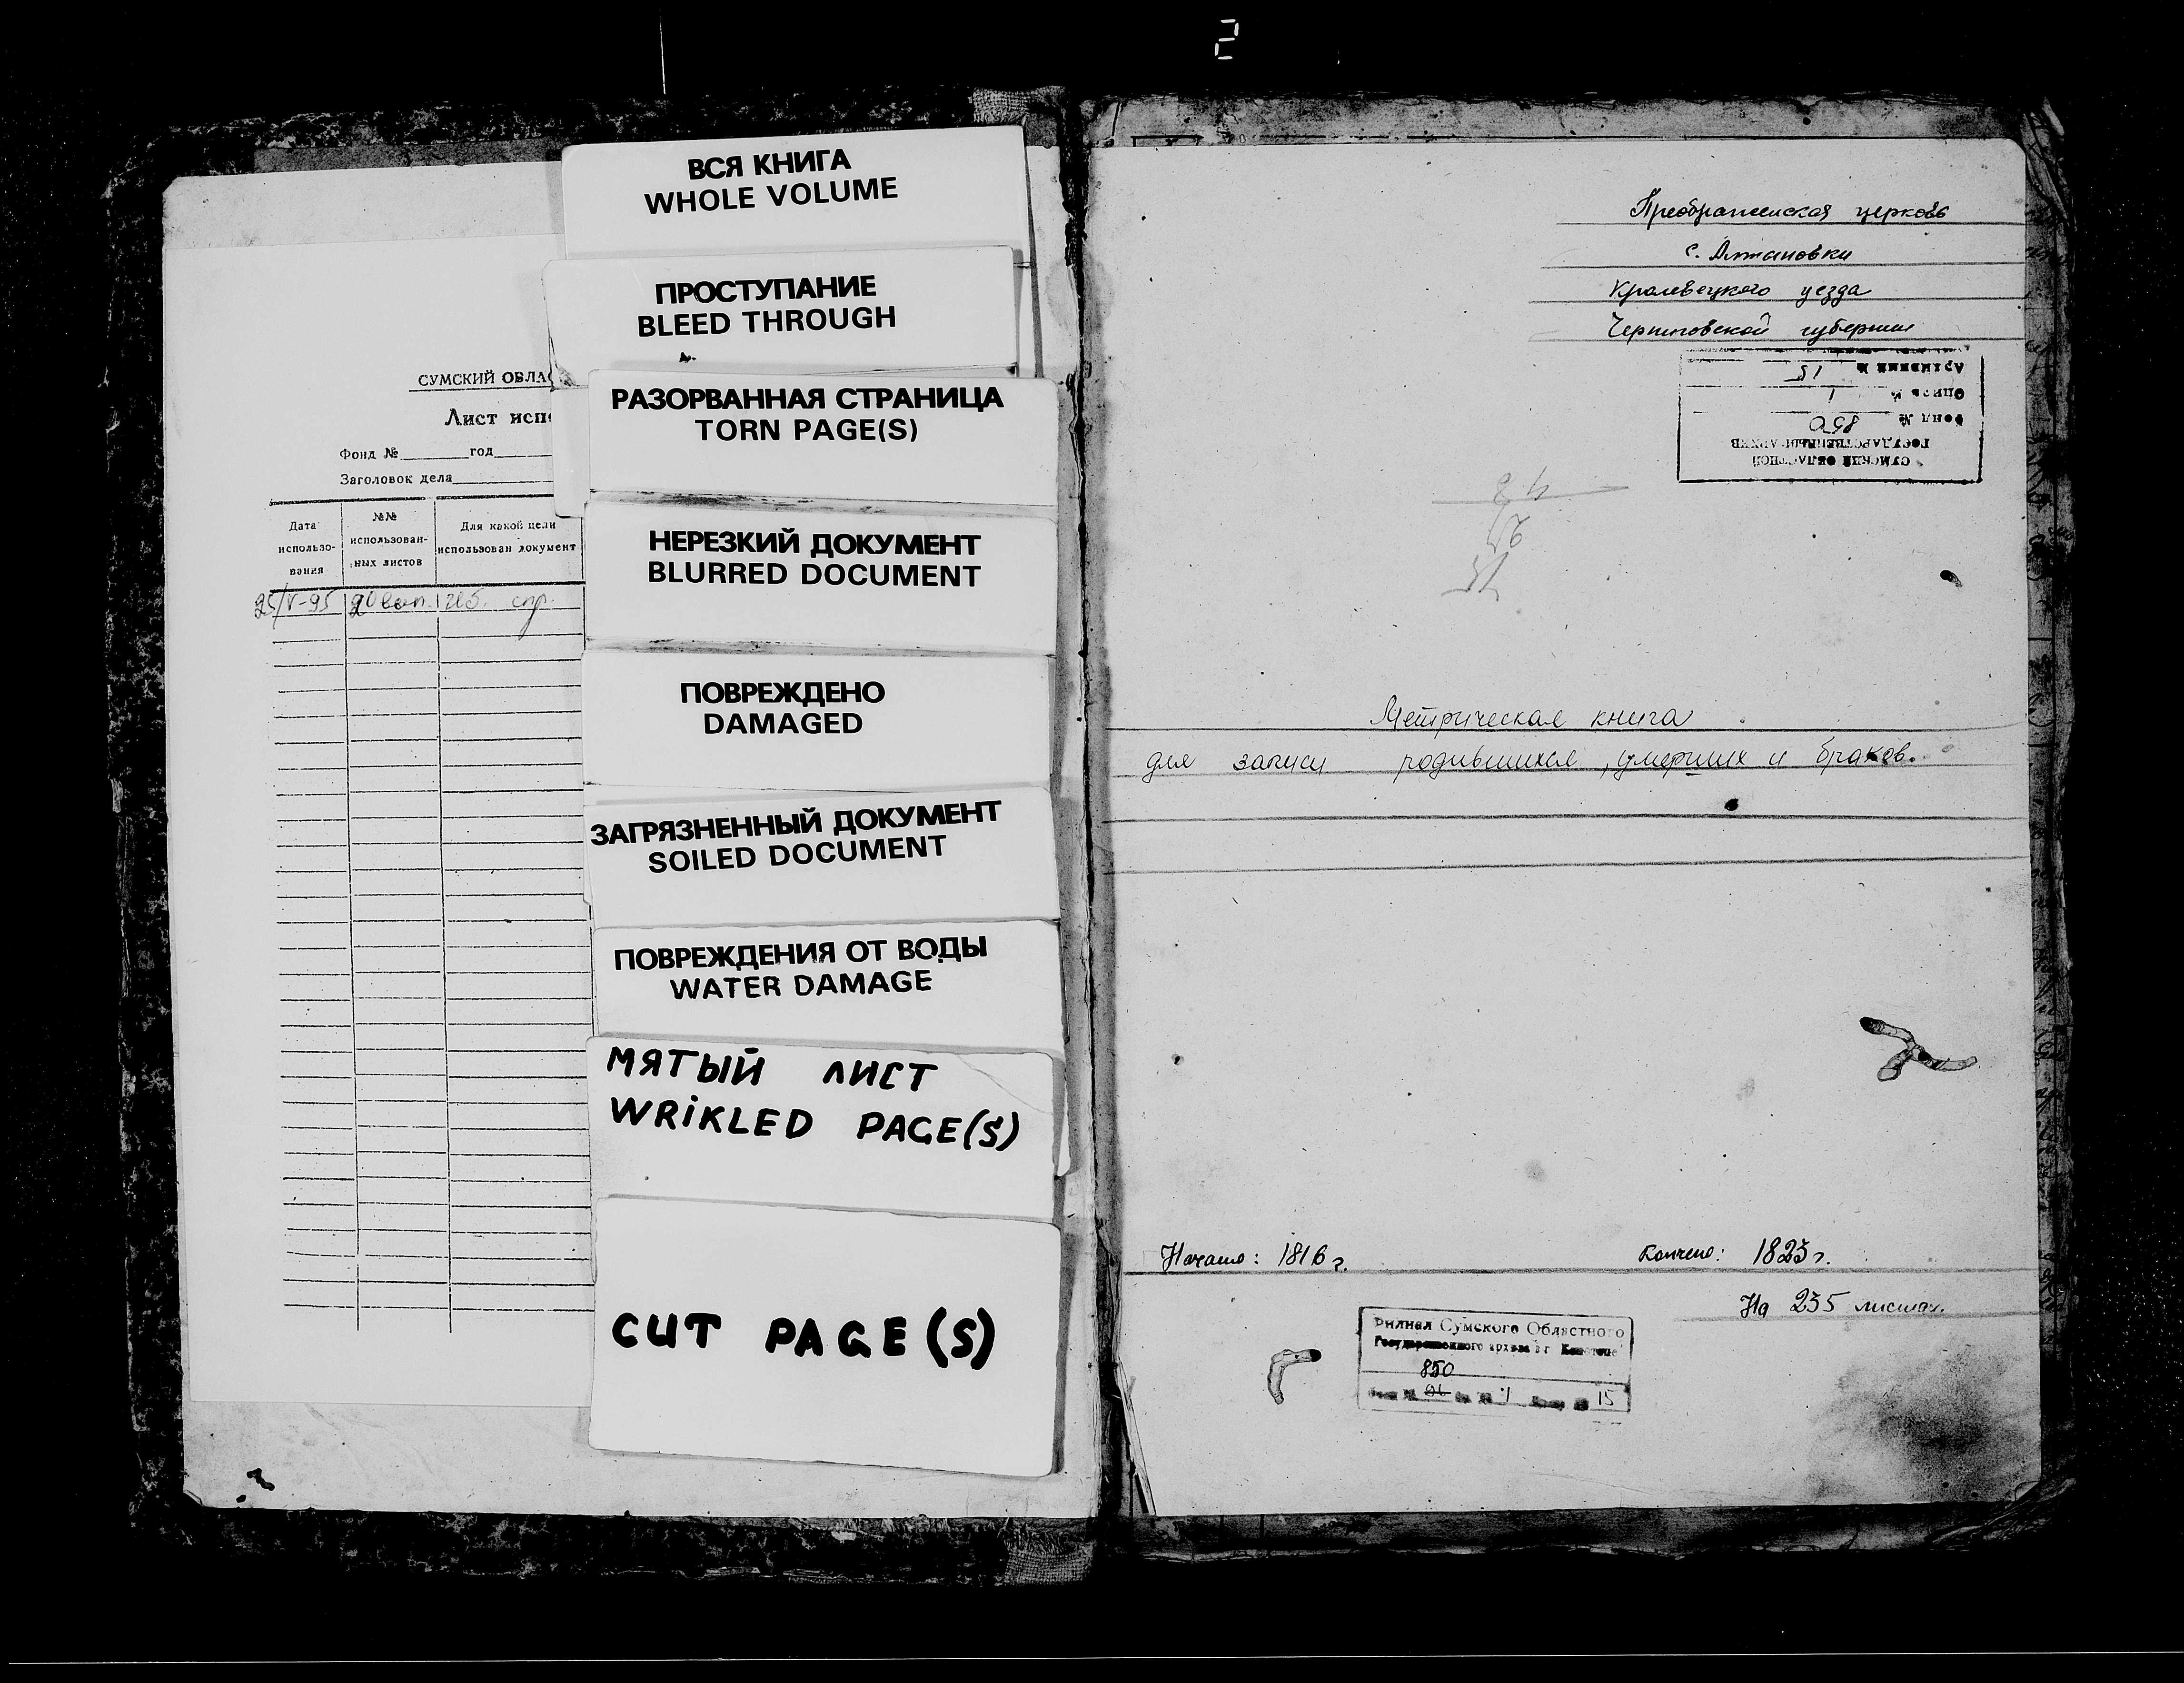 2
СУМСКИЙ ОБЛАС
Лист испо
Фонд № год
Заголовок дела
Дата использо-вания
№№ использован-ных листов
Для какой цели использован документ
25/V-95
ВСЯ КНИГА
WHOLE VOLUME
ПРОСТУПАНИЕ
BLEED THROUGH
РАЗОРВАННАЯ СТРАНИЦА
TORN PAGE(S)
НЕРЕЗКИЙ ДОКУМЕНТ
BLURRED DOCUMENT
ПОВРЕЖДЕНО
DAMAGED
ЗАГРЯЗНЕННЫЙ ДОКУМЕНТ
SOILED DOCUMENT
ПОВРЕЖДЕНИЯ ОТ ВОДЫ
WATER DAMAGE
МЯТЫЙ ЛИСТ
WRIKLED PAGE(S)
CUT PAGE(S)
Преображенская церковь
с. Алтыновки
Кролевецкого уезда
Черниговской губернии
СУМСКИЙ ОБЛАСТНОЙ
ГОСУДАРСТВЕННЫЙ АРХИВ
Фонд № 850
Опись № 1
15
Метрическая книга
для записи родившихся, умерших и браков.
Начато: 1816 г.
Кончено: 1823 г.
На 235 листах.
Филиал Сумского Областного
Государственного архива в г. Конотопе
850
1 15